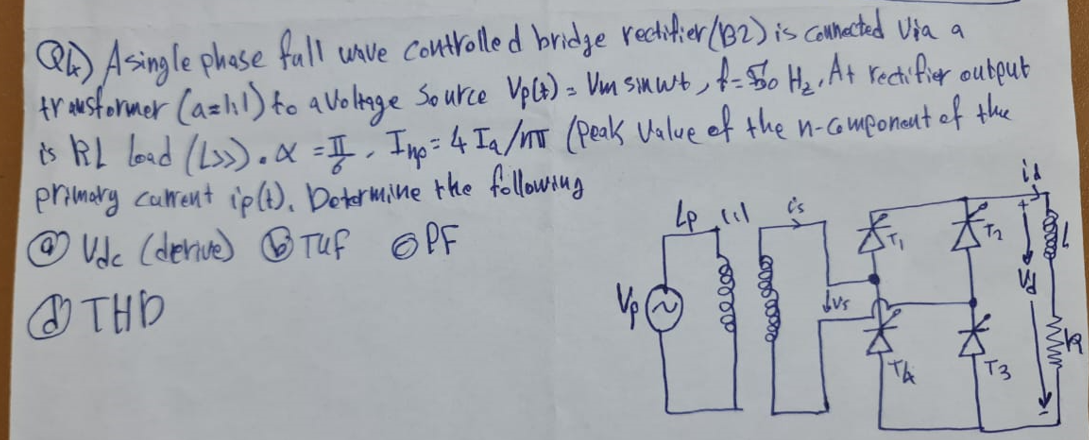 Q4) A single phase full wave controlled bridge rectifier (B2) is connected via a
transformer (a=1:1) to a voltage source Vp(t) = Vm sinwt, f=50 Hz. At rectifier output
is RL load (L>>). α = π/6, Inp = 4 Ia/nπ (peak value of the n-component of the
primary current ip(t). Determine the following
ⓐ Vdc (derive) ⓑ TUF ⓒ PF
ⓓ THD
Lp 1:1 is id
T1 T2 L
Vp Vs Vd
T4 T3 R